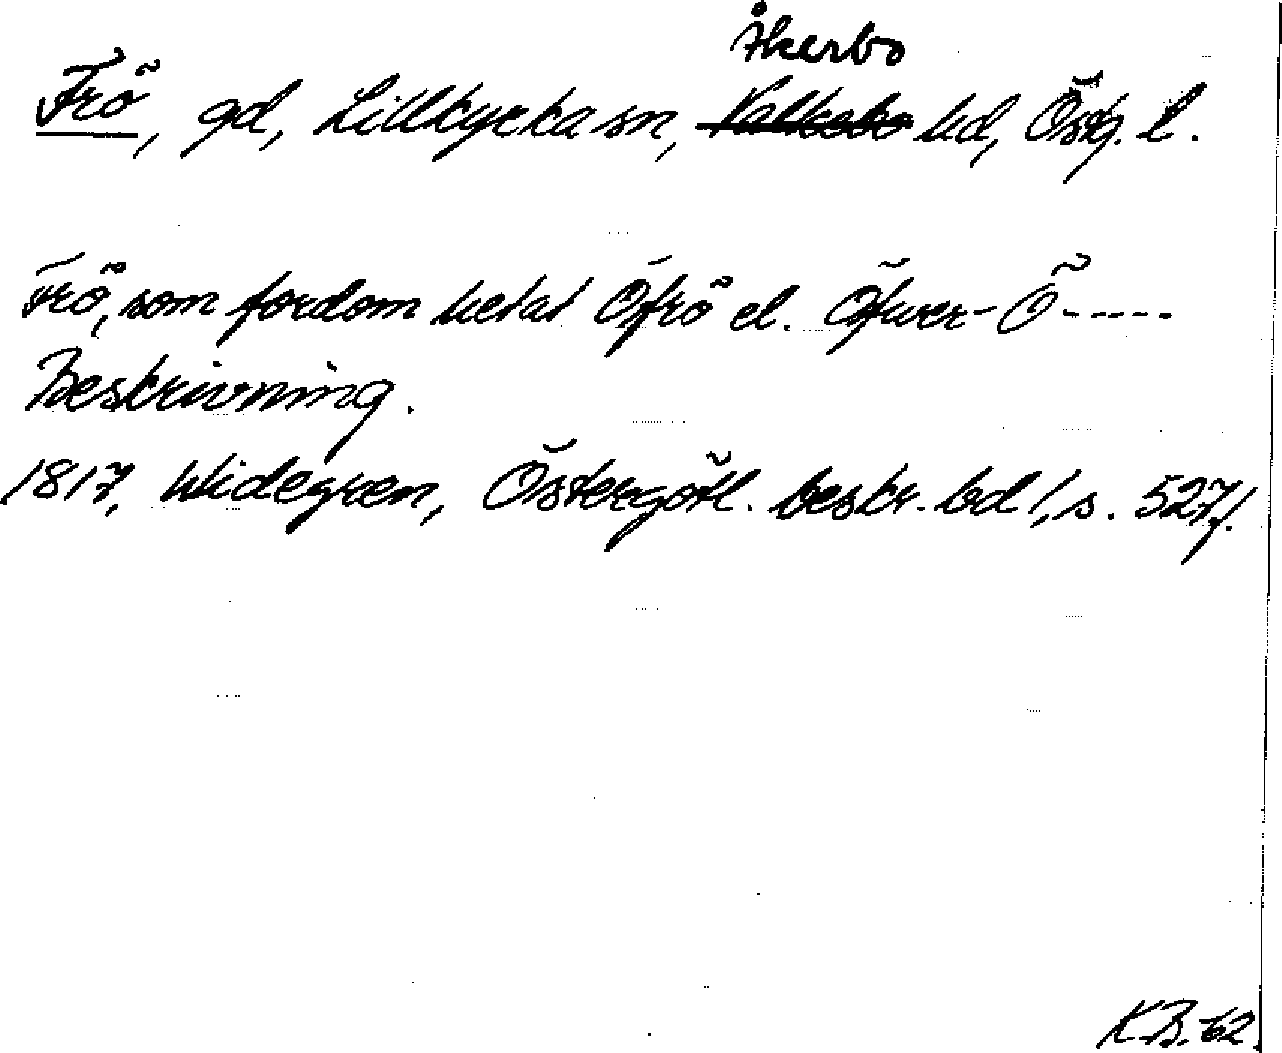 Åkerbo
Frö, gd, Lillkyrka sn, Valkebo hd, Östg. l.
Frö, som fordom hetat Öfrö el. Öfwer-Ö-----
Beskrivning.
1817, Widegren, Östergötl. beskr. bd 1, s. 527f.
K.B. 62.